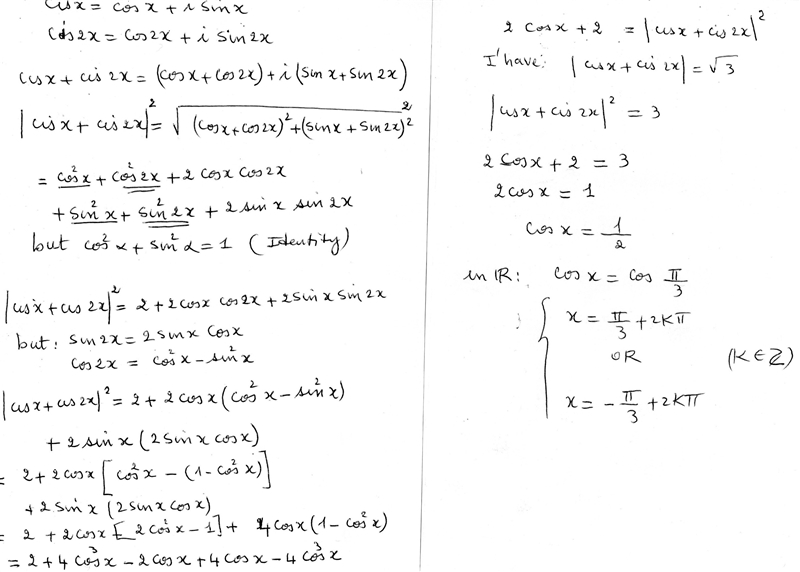 cis x = cos x + i sin x
cis 2x = cos 2x + i sin 2x
cis x + cis 2x = (cos x + cos 2x) + i (sin x + sin 2x)
|cis x + cis 2x|² = √((cos x + cos 2x)² + (sin x + sin 2x)²)²
= cos²x + cos²2x + 2 cos x cos 2x
+ sin²x + sin²2x + 2 sin x sin 2x
but cos²α + sin²α = 1 (Identity)
|cis x + cis 2x|² = 2 + 2cos x cos 2x + 2 sin x sin 2x
but: sin 2x = 2 sin x cos x
cos 2x = cos²x - sin²x
|cis x + cis 2x|² = 2 + 2 cos x (cos²x - sin²x)
+ 2 sin x (2 sin x cos x)
= 2 + 2 cos x [cos²x - (1 - cos²x)]
+ 2 sin x (2 sin x cos x)
= 2 + 2 cos x [2 cos²x - 1] + 4 cos x (1 - cos²x)
= 2 + 4 cos³x - 2 cos x + 4 cos x - 4 cos³x
2 cos x + 2 = |cis x + cis 2x|²
I'have: |cis x + cis 2x| = √3
|cis x + cis 2x|² = 3
2 cos x + 2 = 3
2 cos x = 1
cos x = 1/2
in ℝ: cos x = cos π/3
: { x = π/3 + 2Kπ
OR (K ∈ ℤ)
x = - π/3 + 2Kπ